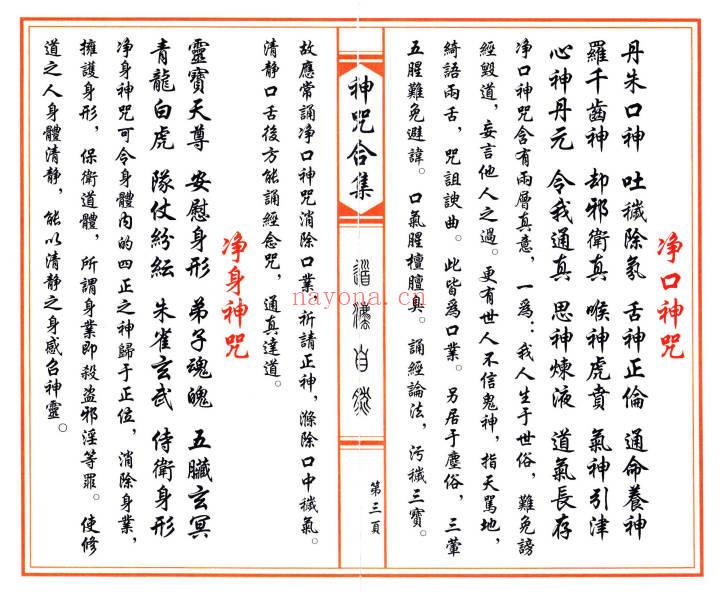 净口神咒
丹朱口神 吐穢除氛 舌神正倫 通命養神
羅千齒神 却邪衛真 喉神虎賁 氣神引津
心神丹元 令我通真 思神煉液 道氣長存
净口神咒含有兩層真意，一爲：我人生于世俗，難免謗
經毀道，妄言他人之過。更有世人不信鬼神，指天駡地，
綺語兩舌，咒詛諛曲。此皆爲口業。另居于塵俗，三葷
五腥難免避諱。口氣腥檀膻臭。誦經論法，污穢三寶。
神咒合集
道濟自然
第三頁
故應常誦净口神咒消除口業，祈請正神，滌除口中穢氣。
清静口舌後方能誦經念咒，通真達道。
净身神咒
靈寶天尊 安慰身形 弟子魂魄 五臟玄冥
青龍白虎 隊仗紛紜 朱雀玄武 侍衛身形
净身神咒可令身體内的四正之神歸于正位，消除身業，
擁護身形，保衛道體，所謂身業即殺盗邪淫等罪。使修
道之人身體清静，能以清静之身感召神靈。
nayona.cn